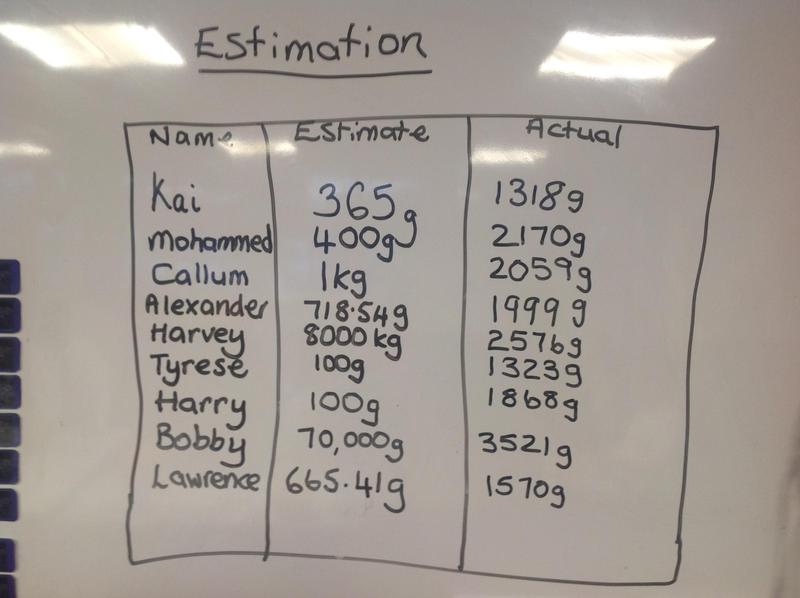 Estimation
Name Estimate Actual
Kai 365g 1318g
Mohammed 400g 2170g
Callum 1kg 2059g
Alexander 718.54g 1999g
Harvey 8000kg 2576g
Tyrese 100g 1323g
Harry 100g 1868g
Bobby 70,000g 3521g
Lawrence 665.41g 1570g